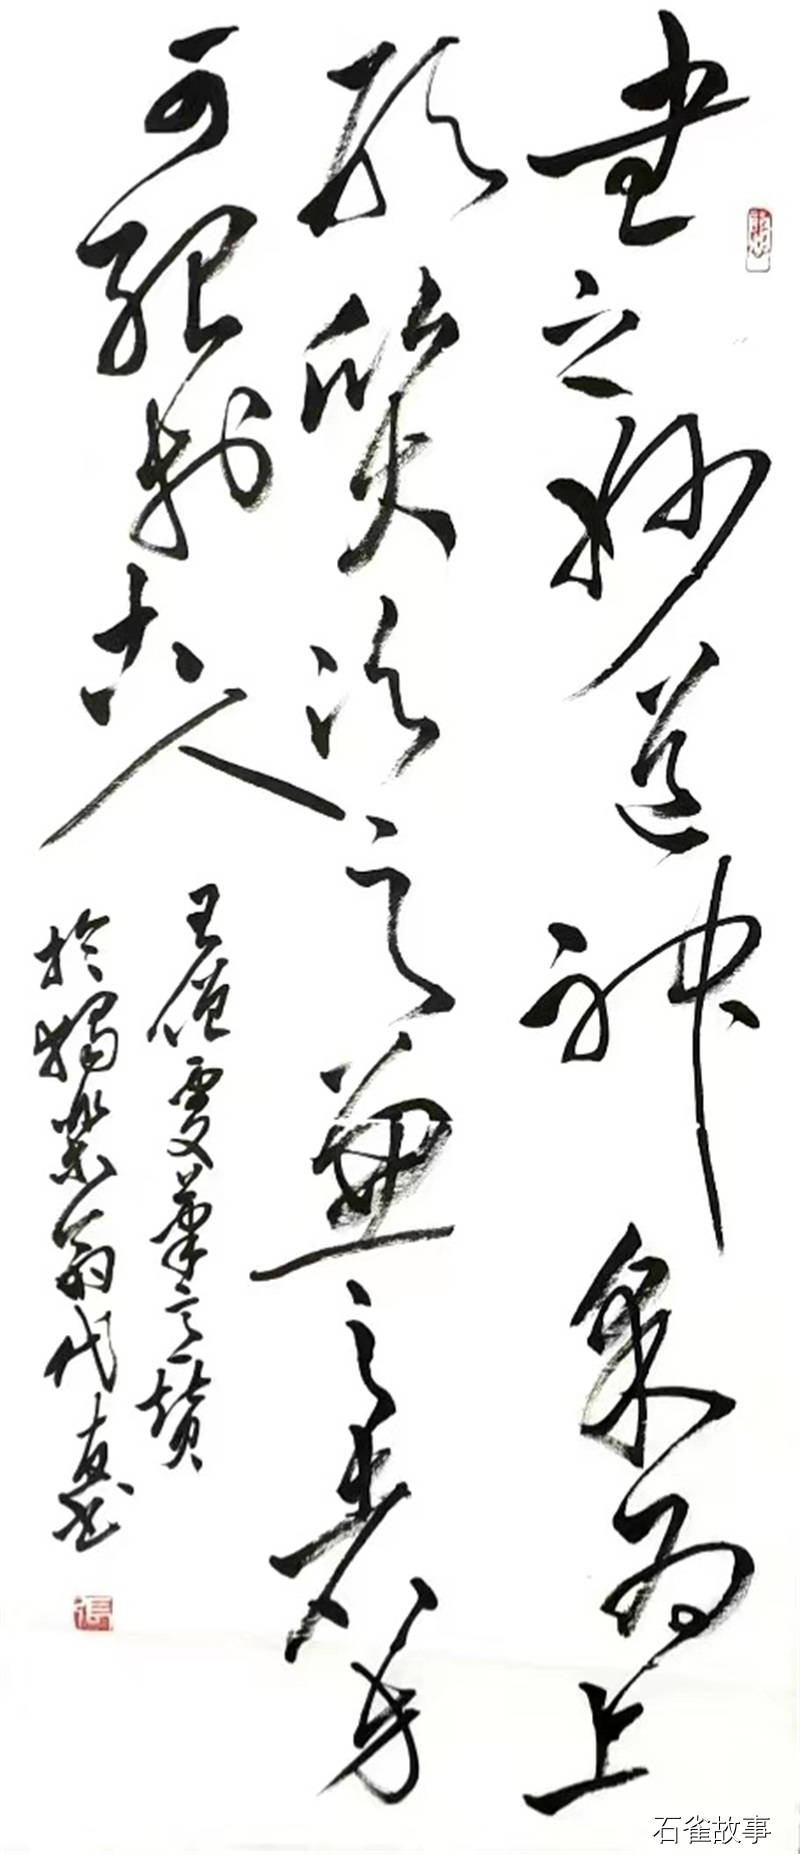 書之妙道神采為上
形質次之兼之者方
可紹於古人
王僧虔筆意贊
於獨樂翁
石雀故事